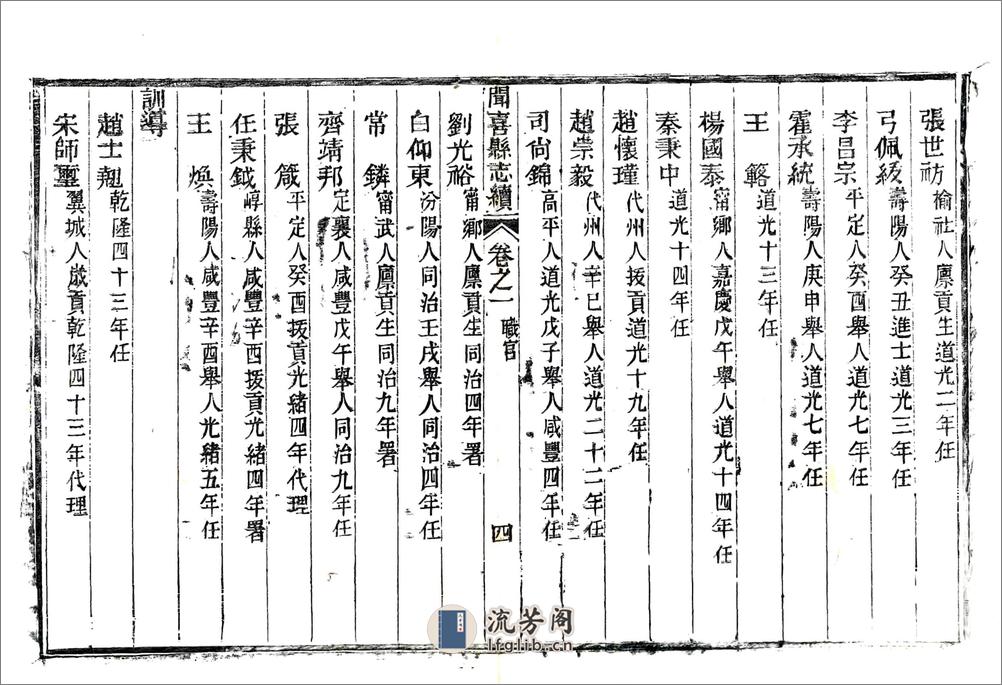 張世祊 榆社人廩貢生道光二年任
弓佩綬 壽陽人癸丑進士道光三年任
李昌宗 平定人癸酉舉人道光七年任
霍承統 壽陽人庚申舉人道光七年任
王輅 道光十三年任
楊國泰 甯鄉人嘉慶戊午舉人道光十四年任
秦秉中 道光十四年任
趙懷瑾 代州人拔貢道光十九年任
趙崇毅 代州人辛巳舉人道光二十二年任
司尙錦 高平人道光戊子舉人咸豐四年任
聞喜縣志續 卷之一 職官 四
劉光裕 甯鄉人廩貢生同治四年署
白仰東 汾陽人同治壬戌舉人同治四年任
常鏻 甯武人廪貢生同治九年署
齊靖邦 定襄人咸豐戊午舉人同治九年任
張箴 平定人癸酉拔貢光緒四年代理
任秉鉞 崞縣人咸豐辛酉拔貢光緒四年署
王煥 壽陽人咸豐辛酉舉人光緒五年任
訓導
趙士翹 乾隆四十三年任
宋師璽 翼城人歲貢乾隆四十三年代理
流芳阁
lfglib.cn